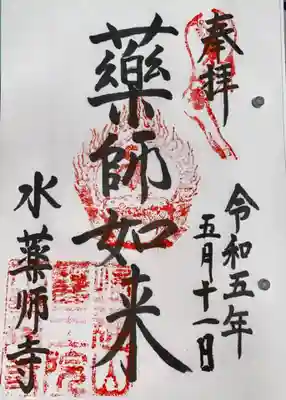 奉拝
令和五年
五月十一日
藥師如来
水藥師寺